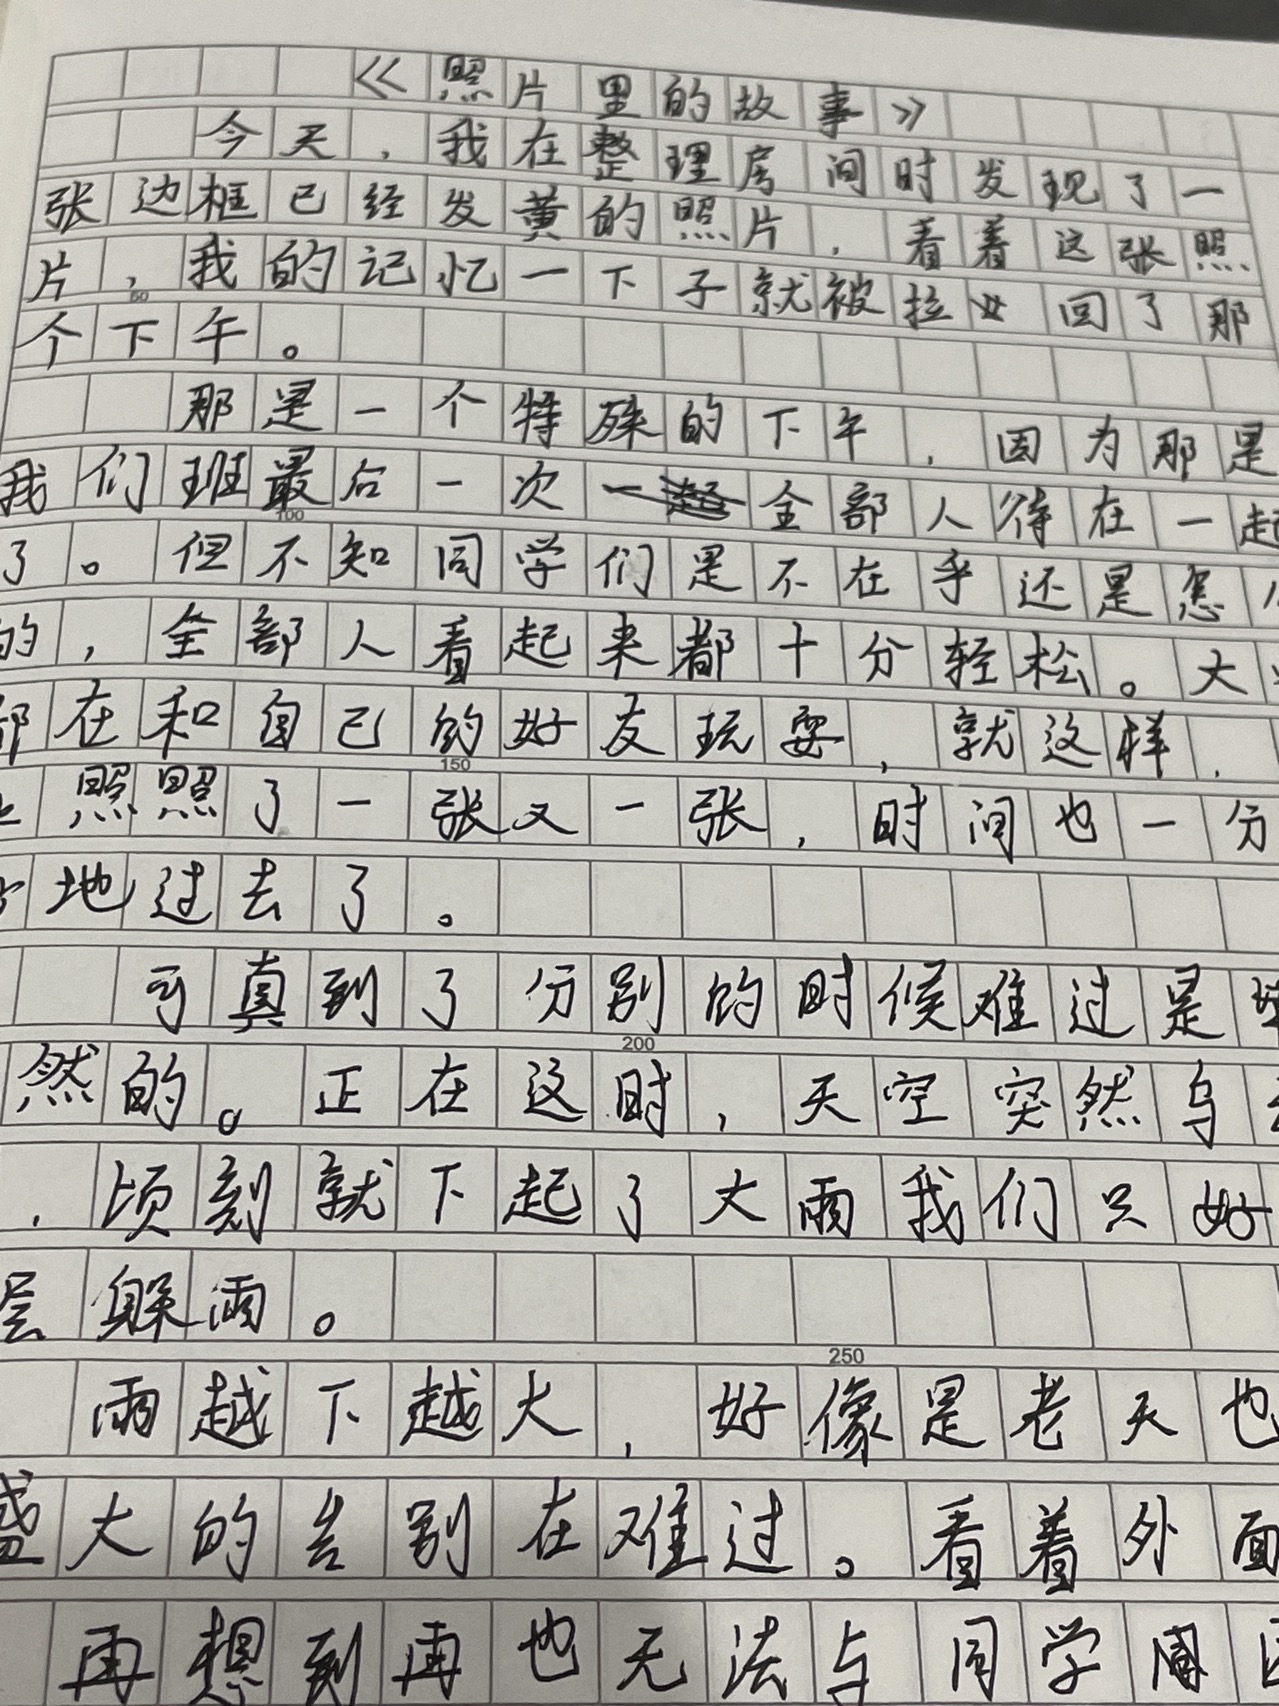 《照片里的故事》
今天，我在整理房间时发现了一
张边框已经发黄的照片，看着这张照
片，我的记忆一下子就被拉回了那
60
个下午。
那是一个特殊的下午，因为那是
我们班最后一次全部人待在一起
100
了。但不知同学们是不在乎还是怎么
的，全部人看起来都十分轻松。大
都在和自己的好友玩耍，就这样，
150
照照了一张又一张，时间也一分
地过去了。
可真到了分别的时候难过是
200
然的。正在这时，天空突然乌
，顷刻就下起了大雨我们只好
层躲雨。
250
雨越下越大，好像是老天也
盛大的告别在难过。看着外面
再想到再也无法与同学